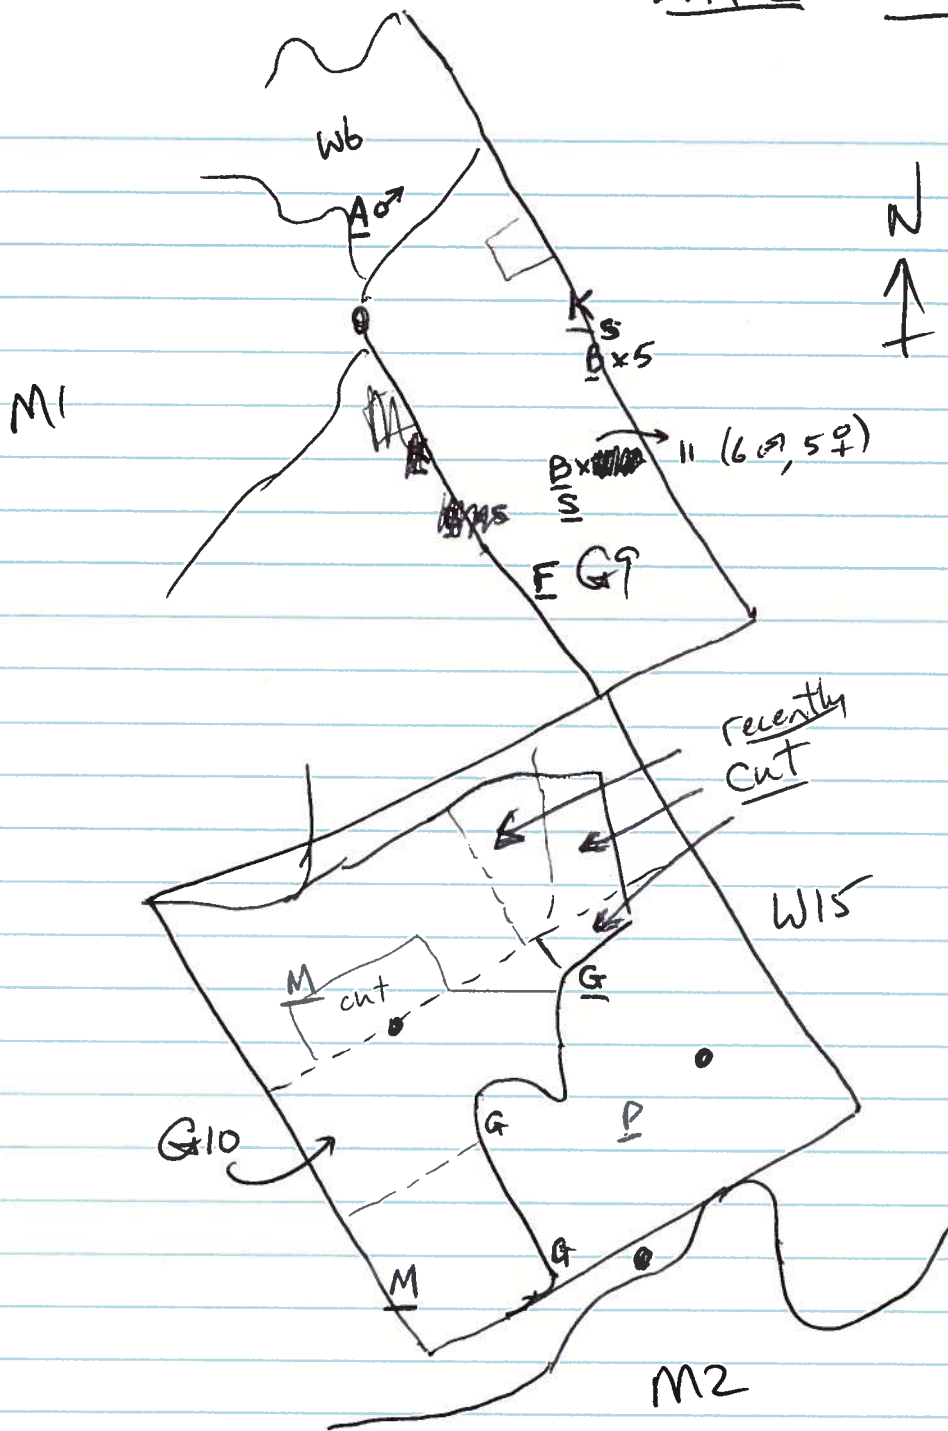 W6
A ♂
N
K
S
B x 5
M1
11 (6♂, 5♀)
B x
S
F G9
recently
cut
W15
M
cut
G
P
G10
G
G
M
M2